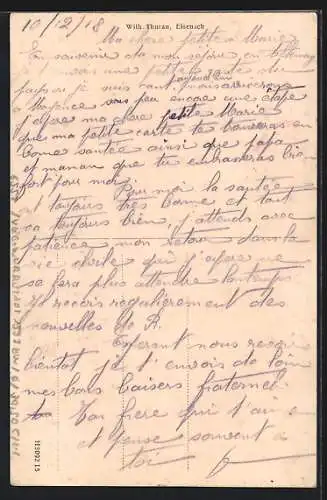 10/12/18
Wilh. Thuran, Eisenach
Ma chère petite Marie
En souvenir de mon séjour en
je une petite carte du
pays où je suis cant. Nous arriverons aujourd'hui
à Mayence sous peu encore une étape
J'espère ma chère petite Marie
que ma petite carte te trouvera en
bonne santée ainsi que papa
et maman que tu embrasseras bien
fort pour moi. Pour moi la santée
et toujours très bonne et tout
va toujours bien j'attends avec
patience mon retour dans la
vie civile qui j'espère ne
se fera plus attendre lontemps
Je reçois regulièrement des
nouvelles de R.
Esperant nous revoir
bientôt je t'envois de loin
mes bons baisers fraternel.
Ton frère qui t'aime
et pense souvent à
toi
H3092 15